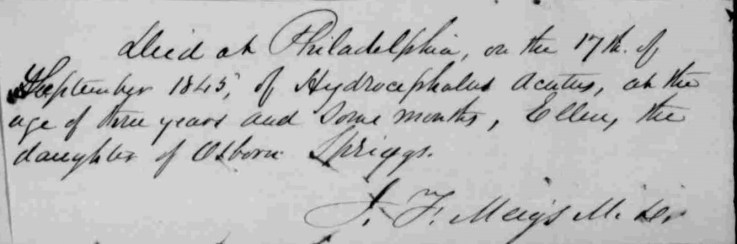 Died at Philadelphia, on the 17th. of
September 1845, of Hydrocephalus Acutus, at the
age of three years and some months, Ellen, the
daughter of Osborn Spriggs.
J. F. Meigs M. D.